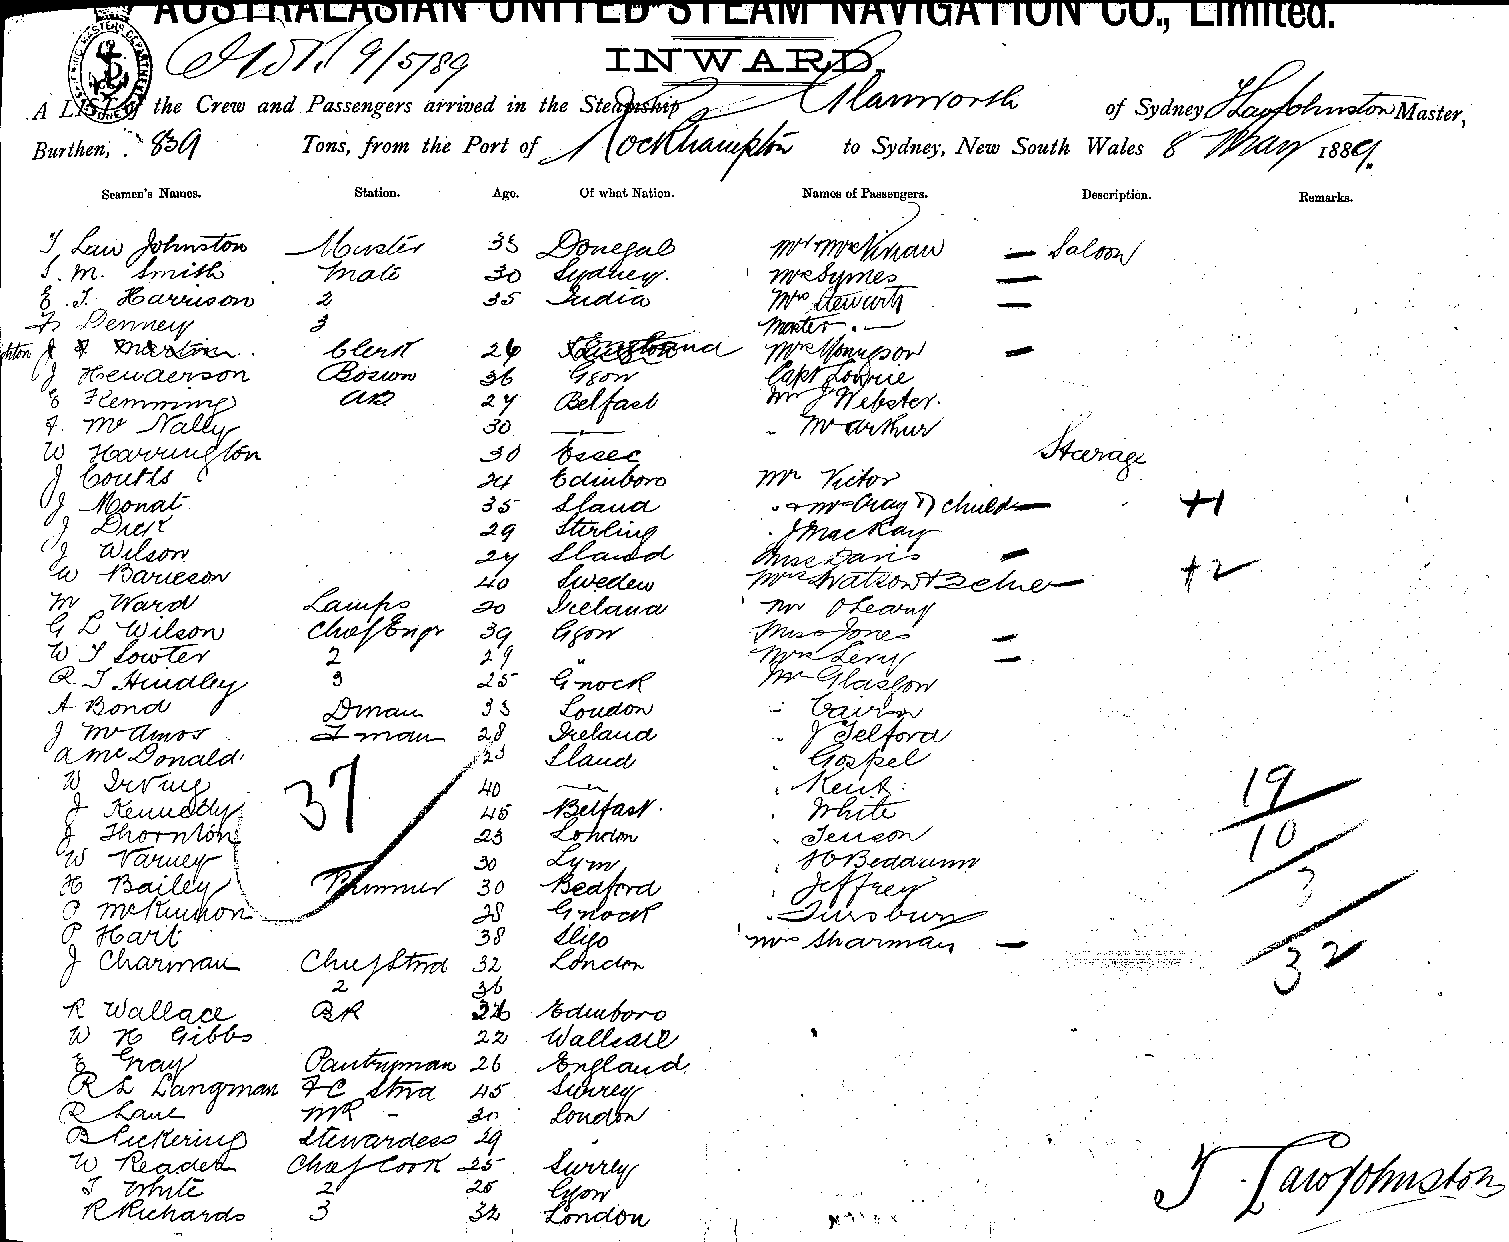 AUSTRALASIAN UNITED STEAM NAVIGATION CO., Limited.
9/5/89
INWARD.
A LIST of the Crew and Passengers arrived in the Steamship Glanworth of Sydney T Law Johnston Master,
Burthen, 839 Tons, from the Port of Rockhampton to Sydney, New South Wales 8 May 1889.
Seamen's Names. Station. Age. Of what Nation. Names of Passengers. Description. Remarks.
T Law Johnston Master 33 Donegal Mr Saloon
S. M. Smith Mate 30 Sydney. Mrs Symes —
E. T. Harrison 2 35 India Mrs Stewart —
Denney 3 Master . —
J Clerk 26 Mrs Youngson —
J Henderson Bosun 36 Ggow Capt Lowrie
E Flemming AB 24 Belfast Mr J Webster.
Mc Nally 30 — McArthur
W Harrington 30 Essec Stearage
J Coutts 24 Edinboro Mr Victor
J Monat 35 Sland & Mrs Gray & child — +1
J Dick 29 Sterling J MacKay
J Wilson 24 Sland Miss Davis —
W Barieson 40 Sweden Mrs Watson + 2 — +2
M Ward Lamps 20 Ireland Mr O'Leary
G L Wilson Chief Engr 39 Ggow Miss Jones —
W T Sowter 2 29 " Mrs Levy —
R. T. Hindley 3 25 G'nock Mr Glasgow
A Bond Dman 33 London
J McAmos Fman 28 Ireland J Telford
A McDonald 23 Sland Gospel
W Irving 40 — Kent
J Kennedy 45 Belfast. White
J Thornton 23 London Jenson
W Varney 30 Lym
H Bailey Trimmer 30 Bedford Jeffrey
P McKinnon 28 G'nock
P Hart 38 Sligo Mrs Sharman —
J Charman Chief Stwd 32 London
2 36
R Wallace BR 26 Edinboro
W H Gibbs 22 Wallsall
E Gray Pantryman 26 England
R L Langman FC Stwd 45 Surrey
R Lane MR - 30 London
B Pickering Stewardess 29
W Reader Chief Cook 25 Surrey
T White 2 25 Ggow
R Richards 3 32 London
37
19
10
3
32
T. Law Johnston